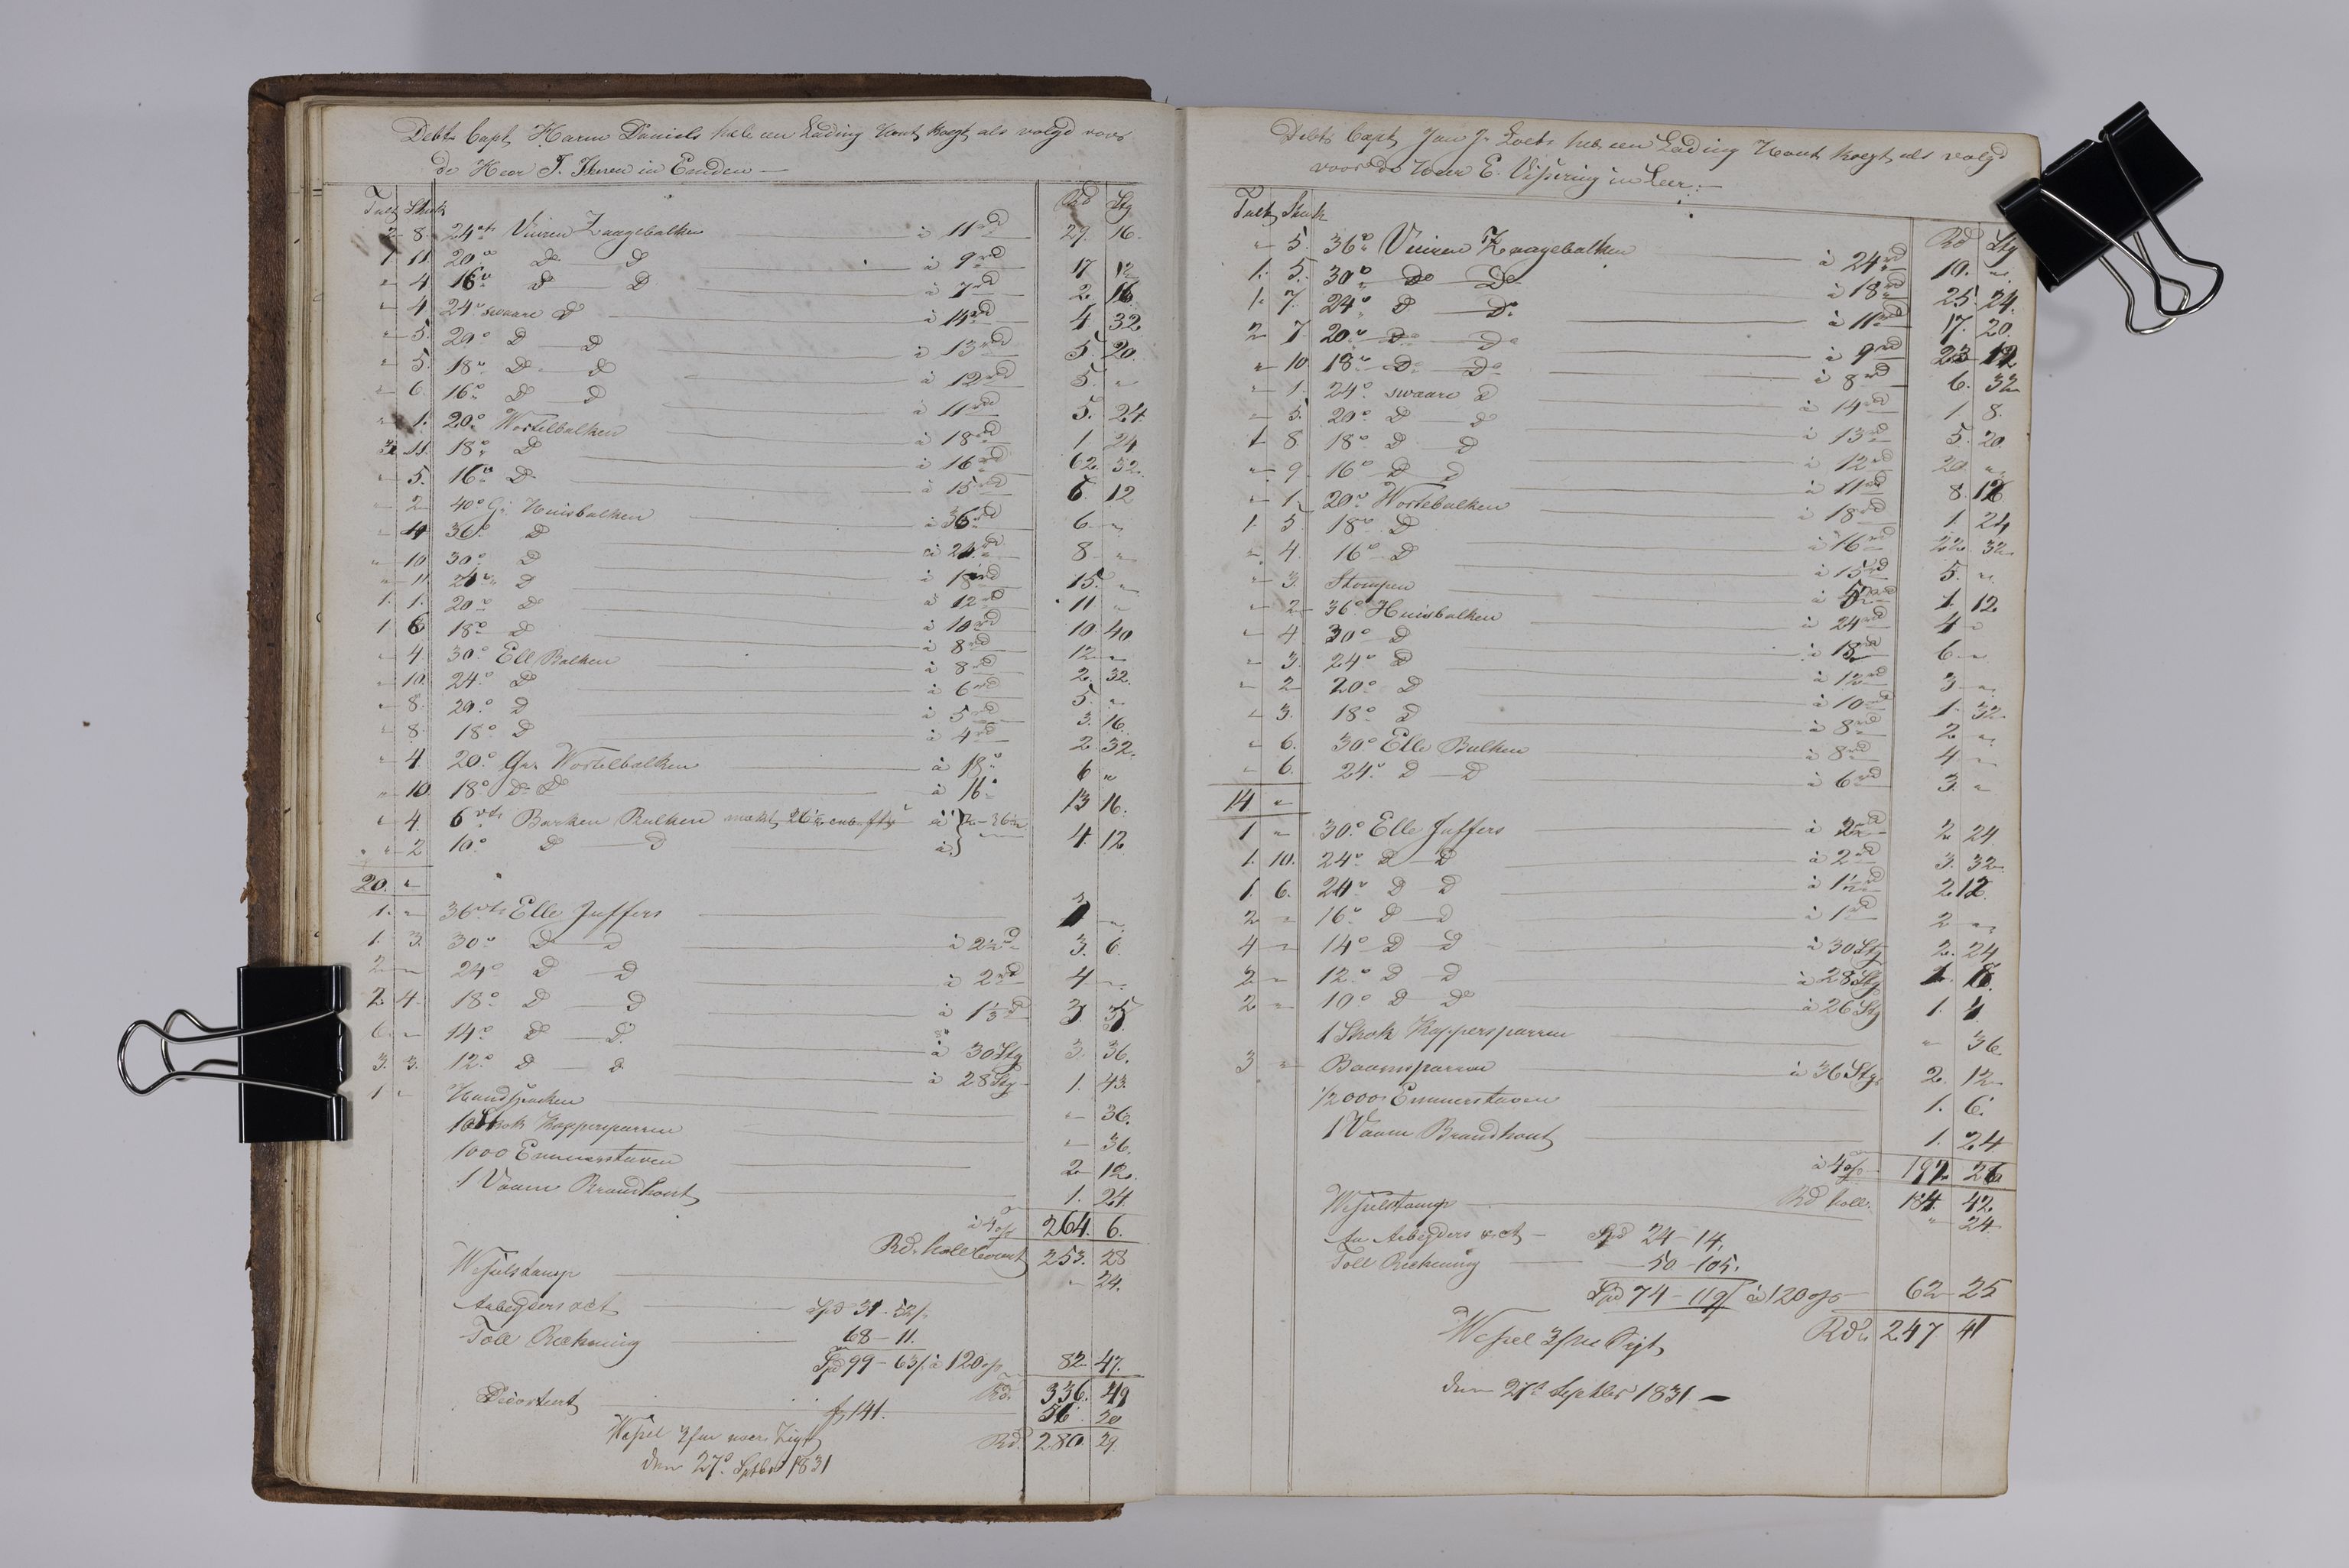 Debt Capt Harm Daniels heb een Lading Hout kogt als volgd voor
de Heer J. Iheren in Emden
Tult Stuk Rd Stg
2 8. 24 vts Vuiren Zaagebalken à 11 rd 29. 16.
1 11 20 v Do D à 9 rd 17 12
" 4 16 v D D à 7 rd 2. 16
" 4 24 v swaare D à 14 rd 4. 32
" 5. 20 v D D à 13 rd 5. 20.
" 5. 18 v D D à 12 rd 5. "
" 6. 16 v D D à 11 rd 5. 24.
" 1. 20 v Wortelbalken à 18 rd 1. 24
3. 11. 18 v D à 16 rd 62. 32.
" 5. 16 v D à 15 rd 6. 12
" 2 40 v Gr. Huisbalken à 36 rd 6 "
" 4 36 v D à 24 rd 8 "
" 10 30 v D à 18 rd 15. "
" 11 24 v D à 12 rd 11 "
1. 1. 20 v D à 10 rd 10. 40
1 6 18 v D à 8 rd 12 "
" 4. 30 v Ell Balken à 8 rd 2. 32.
" 10. 24 v D à 6 rd 5. "
" 8. 20 v D à 5 rd 3. 16.
" 8. 18 v D à 4 rd 2. 32.
" 4 20 v Gr. Wortelbalken à 18 " 6 "
" 10. 18 v D D à 16 " 13 16.
" 4. 6 vts Barken Balken
" 2 10 v D D à 4. 12
20. "
1. " 36 vts Elle Juffers 3 "
1. 3. 30 v D D à 2½ rd 3. 6.
2 " 24 v D D à 2 rd 4 "
2. 4. 18 v D D à 1⅓ rd 3. 5.
6. " 14 v D D à 30 Stg 3. 36.
3. 3. 12 v D D à 28 Stg 1. 43.
1 " Handspaken " 36.
1 Shok Koppersparren " 36.
1000 Emmerstaven 2 12.
1 Vaam Brandhout 1. 24.
à 4 o/o 264. 6.
Rd. holl Courant 253. 28
Wesselstamp " 24.
Arbeyders act Spd 31-52/.
Toll Rekening 68-11.
Spd 99-63/. à 120 o/o 82 47.
Rd. 336. 49
f 141. 56. 20
Rd. 280. 29.
Wessel
den 27 d Septbr 1831
Debt Capt Jan Jr. Loets heb een Lading Hout kogt als volgd
voor de Heer E. Vissering in Leer:
Tult Stuk Rd Stg
" 5. 36 v Vuiren Zaagebalken à 24 rd 10. "
1. 5. 30 v Do Do à 18 rd 25. 24.
1. 7. 24 v D Do à 11 rd 17. 20.
2 7 20 v Do Do à 9 rd 23 12
" 10 18 v Do Do à 8 rd 6. 32
" 1. 24 v swaare D à 14 rd 1 8.
" 5. 20 v D D à 13 rd 5. 20
1 8 18 v D D à 12 rd 20. "
" 9. 16 v D D à 11 rd 8. 12
" 1. 20 v Wortebalken à 18 rd 1. 24
1. 5 18 v D à 16 rd 22. 32
" 4. 16 v D à 15 rd 5. "
" 3. Stompen 1. 12.
" 2 36 v Huisbalken à 24 rd 4 "
" 4 30 v D à 18 rd 6 "
" 3. 24 v D à 12 rd 3 "
" 2 20 v D à 10 rd 1. 32
" 3. 18 v D à 8 rd 2. "
" 6. 30 v Elle Balken à 8 rd 4 "
" 6. 24 v D D à 6 rd 3. "
14 "
1 " 30 v Elle Juffers à 2½ rd 2. 24
1. 10. 24 v D D à 2 rd 3. 32
1. 6. 24 v D D à 1½ rd 2. 12
2 " 16 v D D à 1 rd 2 "
4 " 14 v D D à 30 Stg 2. 24
2 " 12 v D D à 28 Stg 1. 8.
2 " 10 v D Do à 26 Stg 1. 4
1 Shok Koppersparren " 36.
3 " Baamsparren à 36 Stg 2. 12
1/2 000 Emmerstaven 1. 6.
1 Vaam Brandhout 1. 24
à 4 o/o 192. 26
Rd holl. 184. 42
Wesselstamp " 24
An Arbeyders act Spd 24-14.
Toll Rekening 50-105.
Spd 74-119/ à 120 o/o 62 25
Rd. 247 41
Wessel
den 27 d Septbr 1831